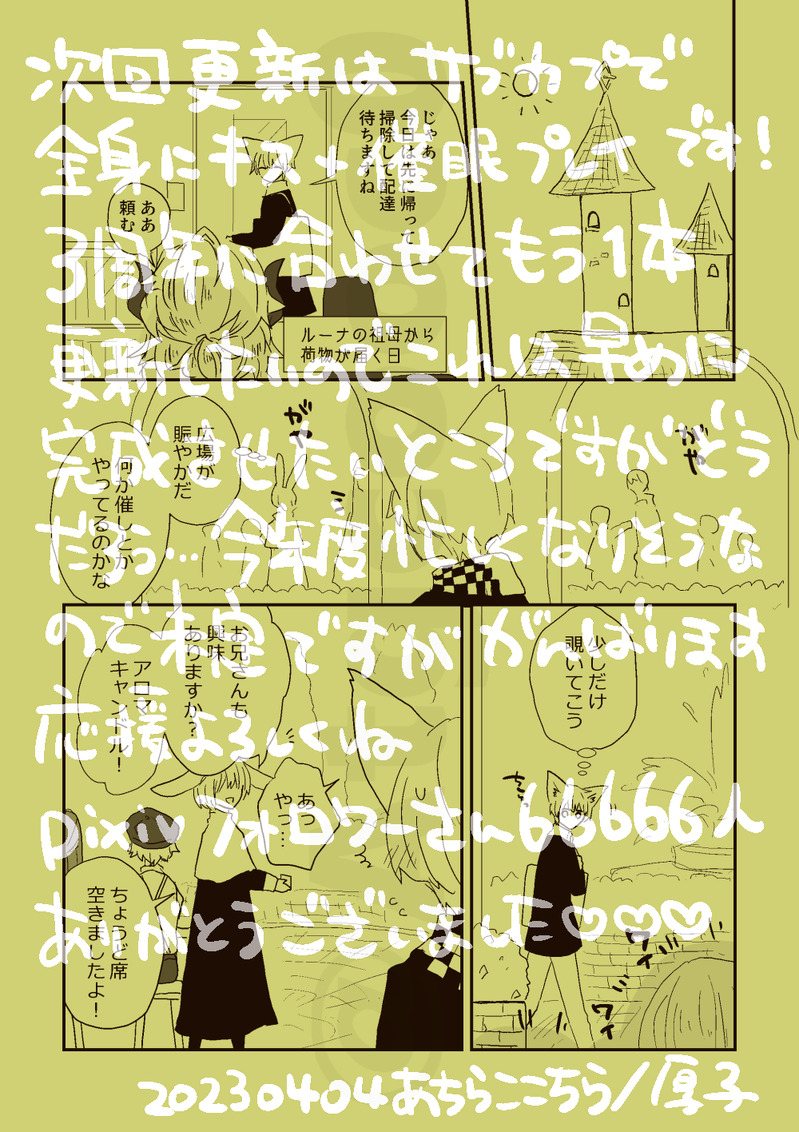 次回更新はサブカプで
全身にキス+催眠プレイです！
3周年に合わせてもう1本
更新したいのでこれは早めに
完成させたいところですがどう
だろう…今年度忙しくなりそうな
ので未定ですががんばります
応援よろしくね
pixivフォロワーさん66666人
ありがとうございました♡♡♡
20230404あちらこちら/厚子
じゃあ
今日は先に帰って
掃除して配達
待ちますね
ああ
頼む
ルーナの祖母から
荷物が届く日
ガヤ
広場が
賑やかだ
何か催しとか
やってるのかな
少しだけ
覗いてこう
ワイ
ワイ
お兄さんも
興味
ありますか？
アロマ
キャンドル！
あっ
やっ…
ちょうど席
空きましたよ！